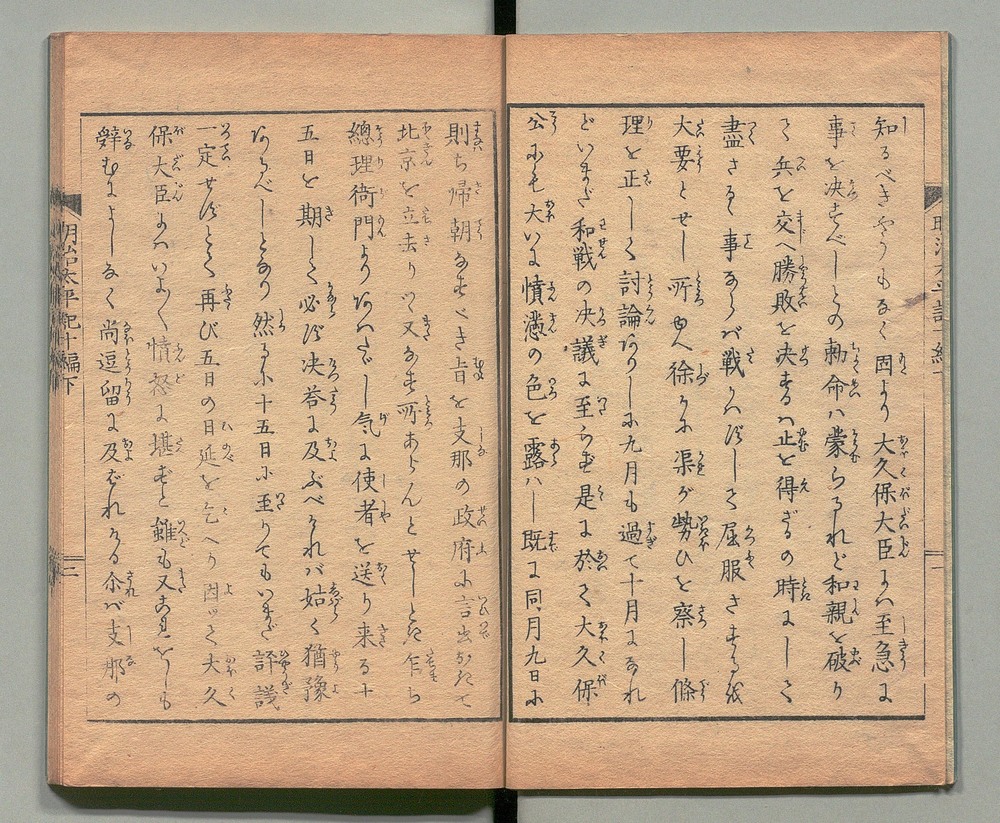 知るべきやうもなく固より大久保大臣には至急に
事を决すべしとの勅命は蒙らるれど和親を破り
て兵を交へ勝敗を决するは止を得ざるの時にして
盡さるゝ事ならば戦かはずして屈服さするを
大要とせし所ゆへ徐かに渠が㔟ひを察し條
理を正しく討論ありしに九月も過て十月になれ
どいまだ和戦の决議に至らず是に於て大久保
公にも大いに憤懣の色を露はし既に同月九日に
則ち帰朝なすべき旨を支那の政府に言出おきて
北京を立去りて又なす所あらんとせしとき乍ち
總理衙門よりあはたゞし気に使者を送り来る十
五日を期して必ず决答に及ぶべければ姑く猶豫
あるべしとなり然るに十五日に至りてもいまだ評議
一定せずとて再び五日の日延を乞へり因って大久
保大臣にはいよ〱憤怒に堪ずと雖も又
辞むによしなく尚逗留に及ばれける余ば支那の
明治太平記十編下
二